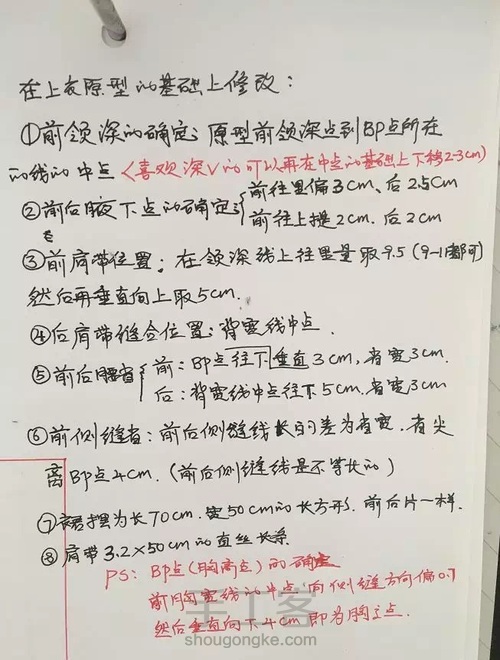 在上衣原型的基础上修改：
①前领深的确定：原型前领深点到BP点所在
的线的中点（喜欢深V的可以再在中点的基础上下移2-3cm）
②前后腋下点的确定：前往里偏3cm、后2.5cm
前往上提2cm、后2cm
③前肩带位置：在领深线上往里量取9.5（9-11都可）
然后再垂直向上取5cm.
④后肩带缝合位置：背宽线中点.
⑤前后腰省 前：BP点往下垂直3cm，省宽3cm.
后：背宽线中点往下5cm，省宽3cm
⑥前侧缝省：前后侧缝线长的差为省宽，省尖
离BP点4cm.（前后侧缝线是不等长的）
⑦裙摆为长70cm.宽50cm的长方形.前后片一样.
⑧肩带3.2×50cm的直丝长条
PS：BP点（胸高点）的确定
前胸宽线的中点向侧缝方向偏0.7
然后垂直向下4cm即为胸高点.
手工客
shougongke.com